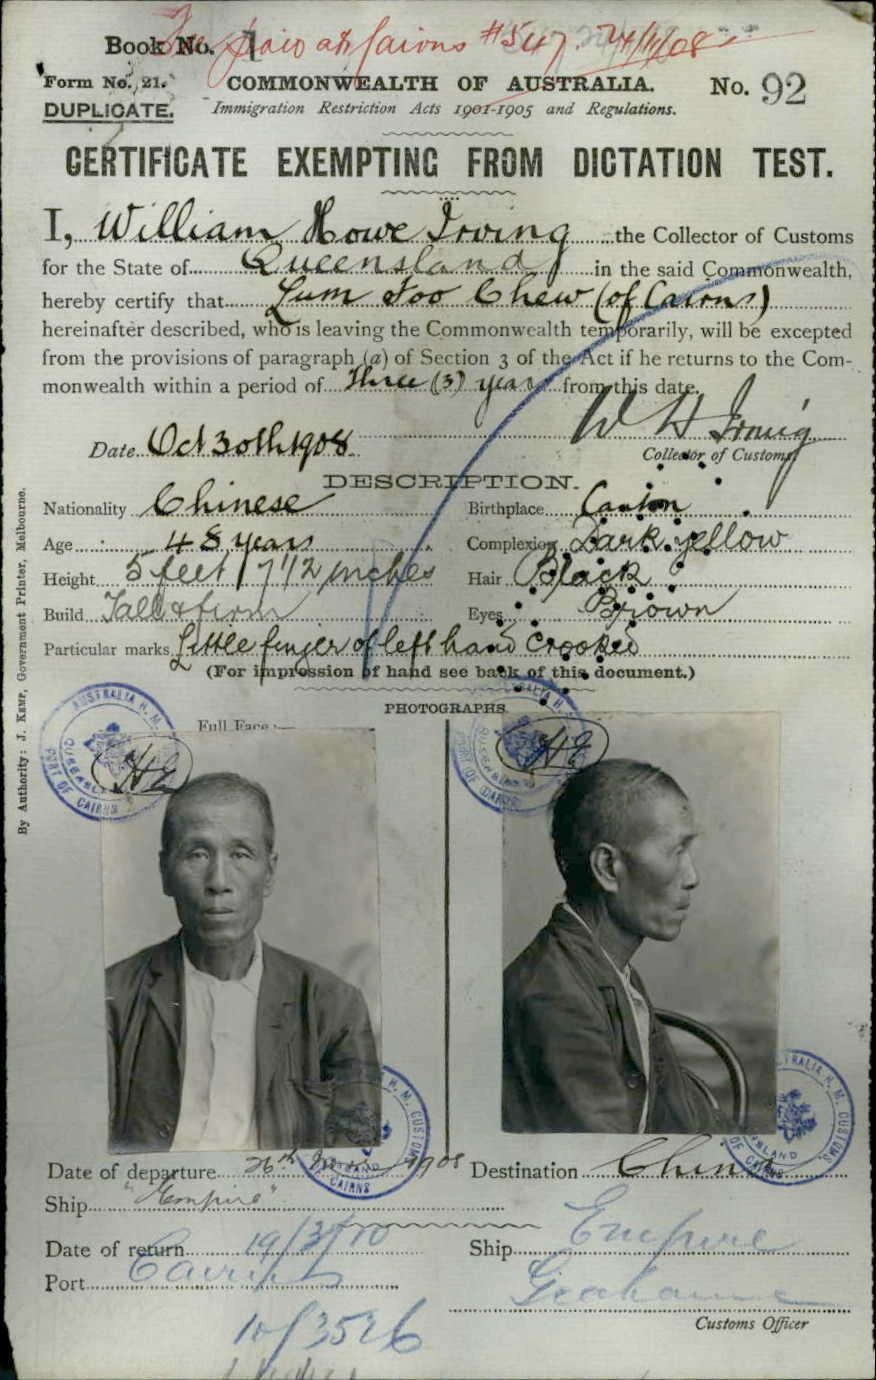 Book No. 1
Fee paid at Cairns #547. 24/11/08
Form No. 21.
COMMONWEALTH OF AUSTRALIA.
No. 92
DUPLICATE.
Immigration Restriction Acts 1901-1905 and Regulations.
CERTIFICATE EXEMPTING FROM DICTATION TEST.
I, William Howe Irving the Collector of Customs
for the State of Queensland in the said Commonwealth,
hereby certify that Lum Foo Chew (of Cairns)
hereinafter described, who is leaving the Commonwealth temporarily, will be excepted
from the provisions of paragraph (a) of Section 3 of the Act if he returns to the Com-
monwealth within a period of Three (3) years from this date.
W H Irving
Date Oct 30th 1908
Collector of Customs
DESCRIPTION.
Nationality Chinese Birthplace Canton
Age 48 years Complexion Dark yellow
Height 5 feet 7 1/2 inches Hair Black
Build Tall & firm Eyes Brown
Particular marks Little finger of left hand crooked
(For impression of hand see back of this document.)
PHOTOGRAPHS.
Full Face:—
AUSTRALIA H. M.
PORT OF CAIRNS
AUSTRALIA H.
PORT OF CAIRNS
AUSTRALIA H. M. CUSTOMS
CAIRNS
Date of departure 26th 1908 Destination China
Ship "Empire"
Date of return 19/3/10 Ship Empire
Port Cairns
Customs Officer
10/3526
By Authority: J. Kemp, Government Printer, Melbourne.